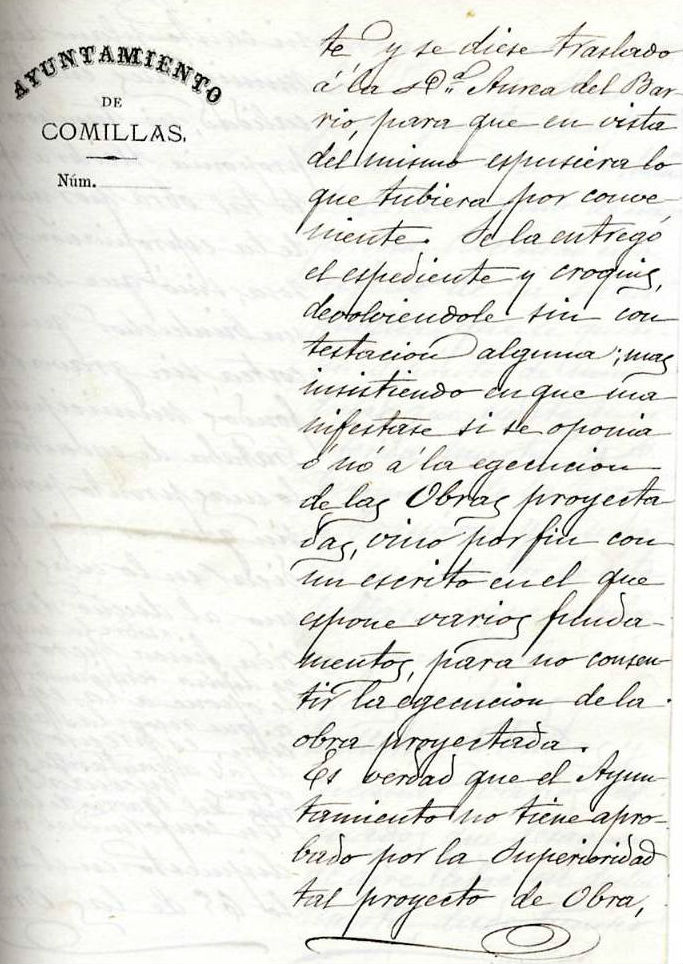 AYUNTAMIENTO
DE
COMILLAS.
Núm.
te y se diese traslado
á la D.ª Aurea del Bar-
rio, para que en vista
del mismo espusiera lo
que tubiera por conve
niente. Se la entregó
el espediente y croquis,
devolviendole sin con
testacion alguna; mas
insistiendo en que ma
nifestase si se oponia
ó nó á la egecucion
de las Obras proyecta-
das, vino por fin con
un escrito en el que
espone varios funda-
mentos, para no consen-
tir la egecucion de la
obra proyectada.
Es verdad que el Ayun-
tamiento no tiene apro-
bado por la Superioridad
tal proyecto de Obra,